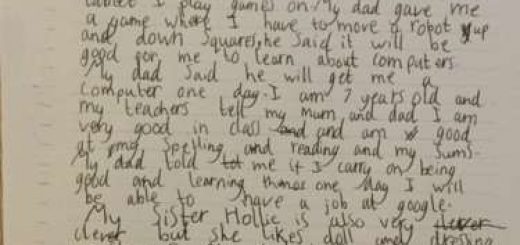 tablet I play games on. My dad gave me
a game where I have to move a robot up
and down squares, he said it will be
good for me to learn about computers
My dad said he will get me a
computer one day. I am 7 years old and
my teachers tell my mum and dad I am
very good in class and and am good
at my spelling and reading and my sums.
My dad told tot me if I carry on being
good and learning things one day I will
be able to have a job at google.
My sister Hollie is also very clever
clever but she likes doll and dressing